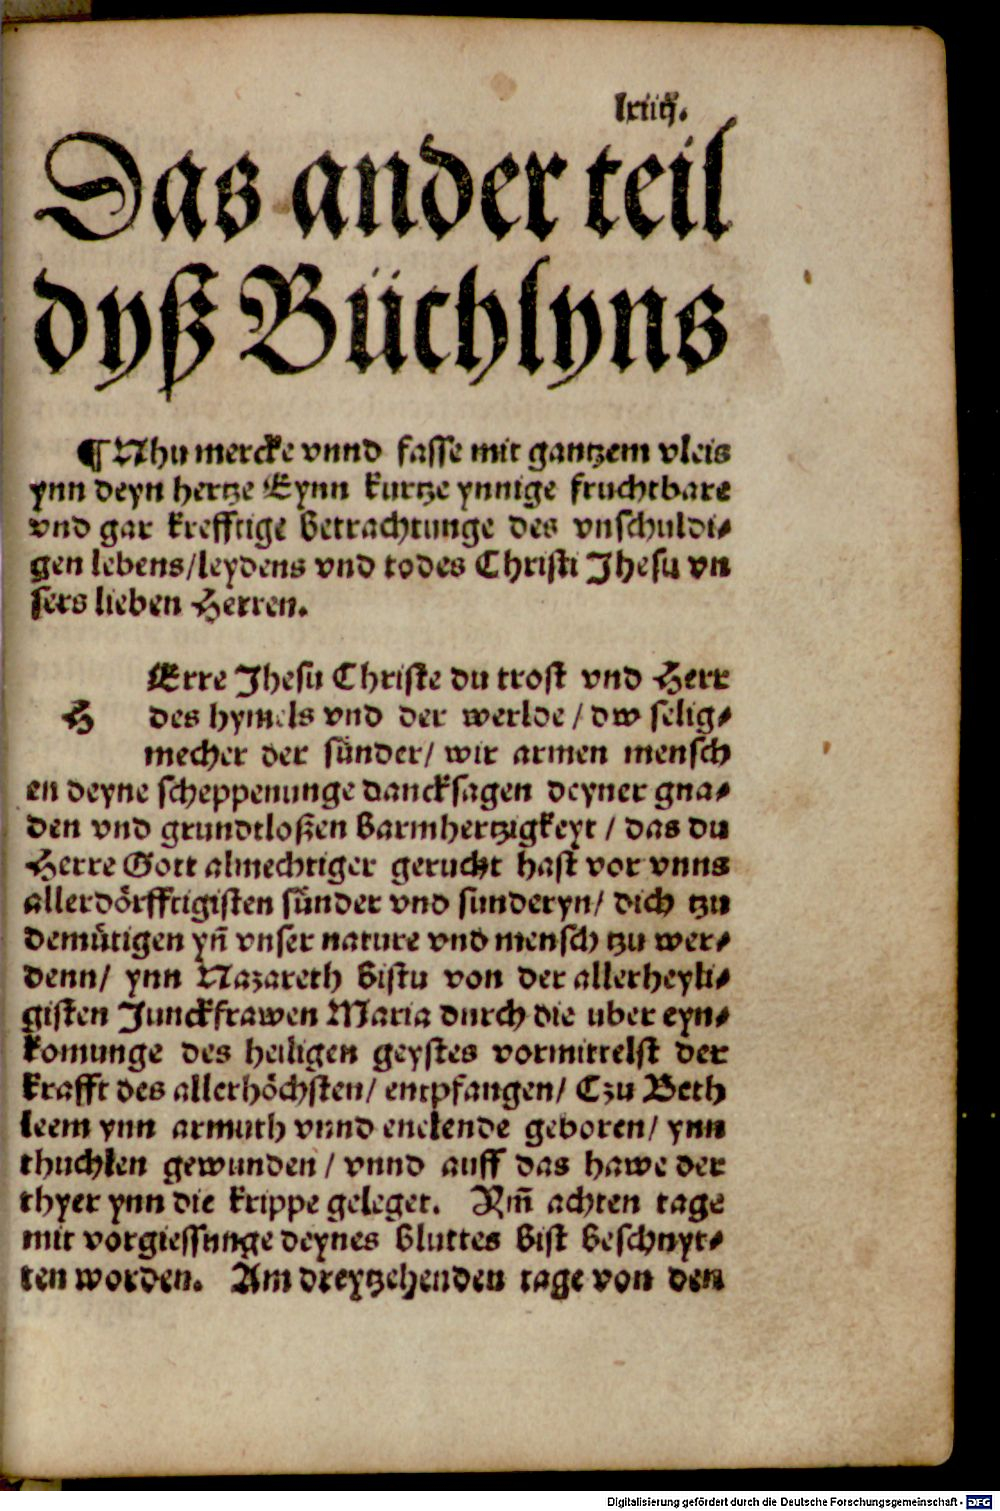 lxiiij.
Das ander teil
dyß Büchlyns
¶ Nhu mercke vnnd fasse mit gantzem vleis
ynn deyn hertze Eynn kurtze ynnige fruchtbare
vnd gar krefftige betrachtunge des vnschuldi⸗
gen lebens/leydens vnd todes Christi Jhesu vn
sers lieben Herren.
Erre Jhesu Christe du trost vnd Herr
H des hymels vnd der werlde / dw selig⸗
mecher der sünder/ wir armen mensch
en deyne scheppenunge dancksagen deyner gna⸗
den vnd grundtloßen barmhertzigkeyt / das du
Herre Gott almechtiger gerucht hast vor vnns
allerdörfftigisten sünder vnd sunderyn/ dich tzu
demütigen yn̄ vnser nature vnd mensch tzu wer⸗
denn/ ynn Nazareth bistu von der allerheyli⸗
gisten Junckfrawen Maria durch die uber eyn⸗
komunge des heiligen geystes vormittelst der
krafft des allerhöchsten/ entpfangen/ Czu Beth
leem ynn armuth vnnd enelende geboren/ ynn
thuchlen gewunden / vnnd auff das hawe der
thyer ynn die krippe geleget. Am̄ achten tage
mit vorgiessunge deynes bluttes bist beschnyt⸗
ten worden. Am dreytzehenden tage von den
Digitalisierung gefördert durch die Deutsche Forschungsgemeinschaft - DFG